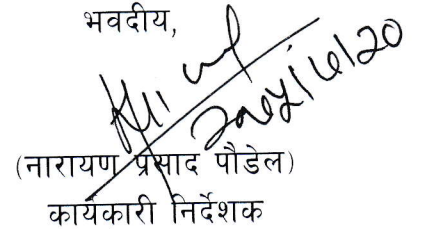 भवदीय,
(नारायण प्रसाद पौडेल)
कार्यकारी निर्देशक